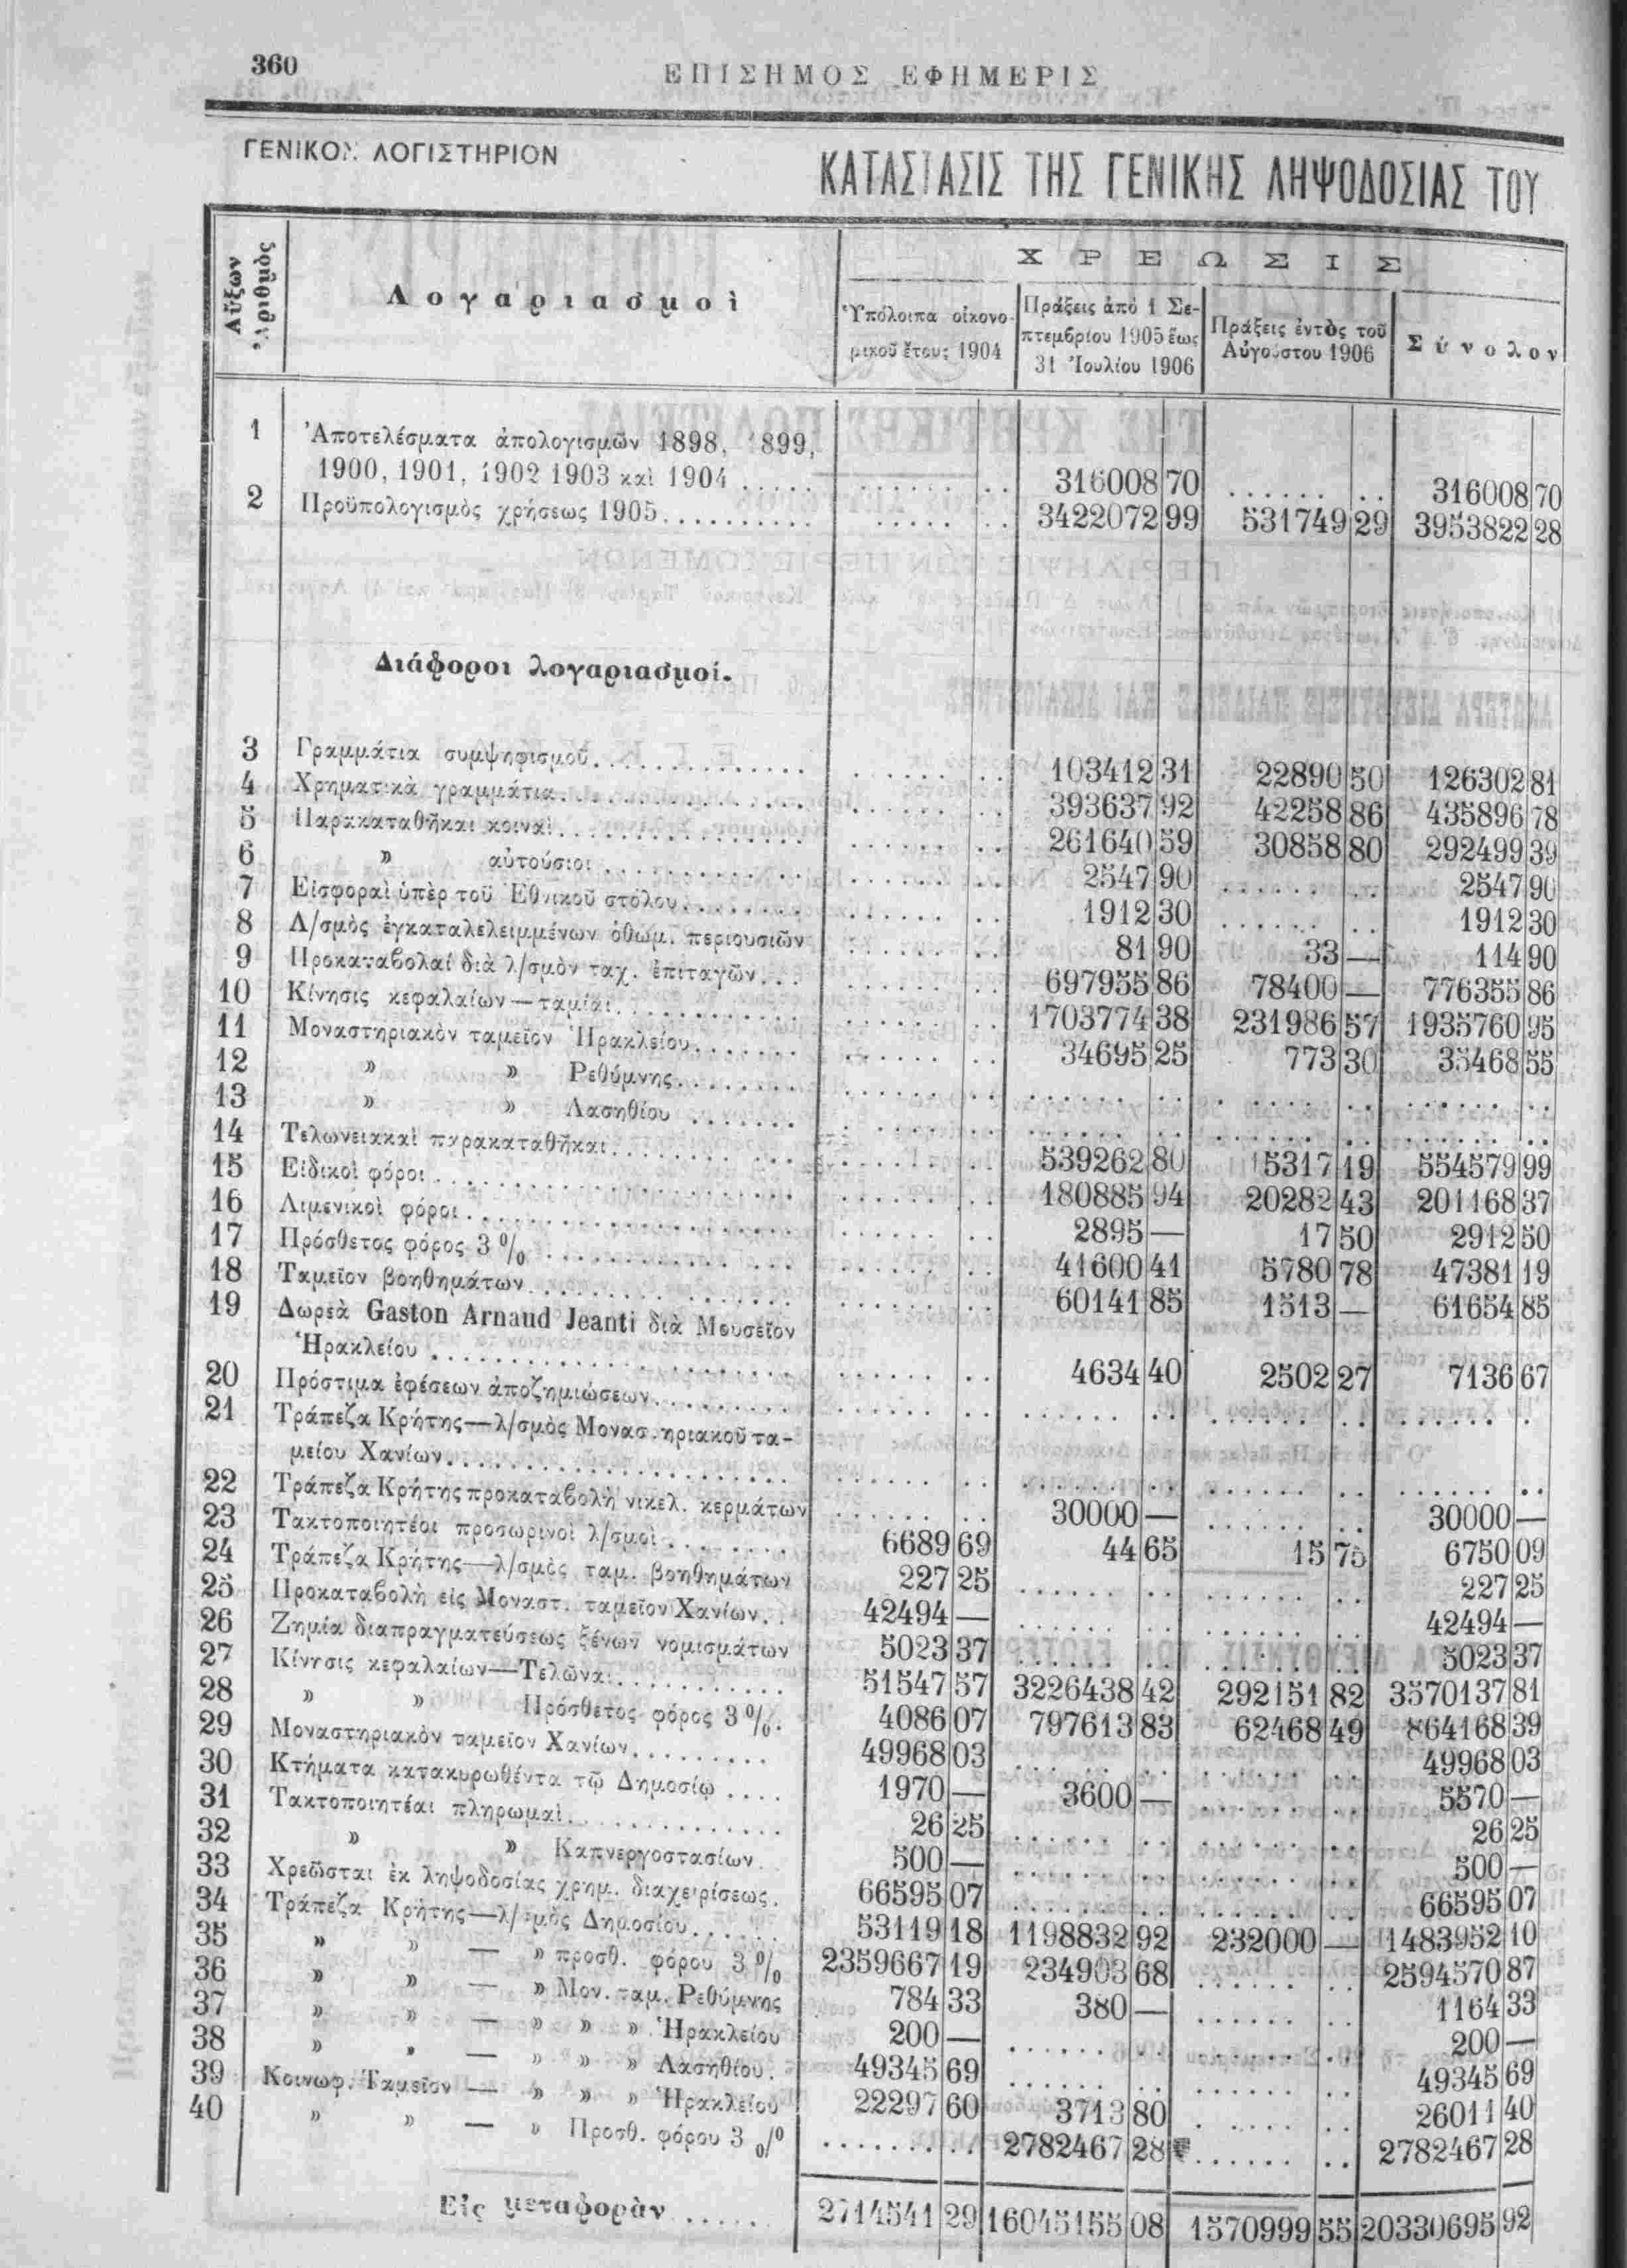 360
ΕΠΙΣΗΜΟΣ ΕΦΗΜΕΡΙΣ
ΓΕΝΙΚΟΝ ΛΟΓΙΣΤΗΡΙΟΝ
ΚΑΤΑΣΤΑΣΙΣ ΤΗΣ ΓΕΝΙΚΗΣ ΛΗΨΟΔΟΣΙΑΣ ΤΟΥ
Αὔξων Ἀριθμὸς
Λογαριασμοὶ
ΧΡΕΩΣΙΣ
Ὑπόλοιπα οἰκονομικοῦ ἔτους 1904
Πράξεις ἀπὸ 1 Σεπτεμβρίου 1905 ἕως 31 Ἰουλίου 1906
Πράξεις ἐντὸς τοῦ Αὐγούστου 1906
Σύνολον
1 Ἀποτελέσματα ἀπολογισμῶν 1898, 1899,
1900, 1901, 1902 1903 καὶ 1904 ..... ....... .. 316008 70 ....... .. 316008 70
2 Προϋπολογισμὸς χρήσεως 1905.......... ..... .. 3422072 99 531749 29 3953822 28
Διάφοροι λογαριασμοί.
3 Γραμμάτια συμψηφισμοῦ............. ....... .. 103412 31 22890 50 126302 81
4 Χρηματικὰ γραμμάτια............... ....... .. 393637 92 42258 86 435896 78
5 Παρακαταθῆκαι κοιναὶ............... ....... .. 261640 59 30858 80 292499 39
6 » αὐτούσιοι............ ....... .. 2547 90 ....... .. 2547 90
7 Εἰσφοραὶ ὑπὲρ τοῦ Ἐθνικοῦ στόλου........ ....... .. 1912 30 ....... .. 1912 30
8 Λ/σμὸς ἐγκαταλελειμμένων ὀθωμ. περιουσιῶν ....... .. 81 90 33 — 114 90
9 Προκαταβολαί διὰ λ/σμὸν ταχ. ἐπιταγῶν... ....... .. 697955 86 78400 — 776355 86
10 Κίνησις κεφαλαίων—ταμίαι............ ....... .. 1703774 38 231986 57 1935760 95
11 Μοναστηριακὸν ταμεῖον Ἡρακλείου....... ....... .. 34695 25 773 30 35468 55
12 » » Ρεθύμνης........ ....... .. ....... .. ....... .. ....... ..
13 » » Λασηθίου ....... ....... .. ....... .. ....... .. ....... ..
14 Τελωνειακαὶ παρακαταθῆκαι............ ....... .. 539262 80 15317 19 554579 99
15 Εἰδικοὶ φόροι...................... ....... .. 180885 94 20282 43 201168 37
16 Λιμενικοὶ φόροι.................... ....... .. 2895 — 17 50 2912 50
17 Πρόσθετος φόρος 3 % ............... ....... .. 41600 41 5780 78 47381 19
18 Ταμεῖον βοηθημάτων................ ....... .. 60141 85 1513 — 61654 85
19 Δωρεὰ Gaston Arnaud Jeanti διὰ Μουσεῖον
Ἡρακλείου ..................... ....... .. 4634 40 2502 27 7136 67
20 Πρόστιμα ἐφέσεων ἀποζημιώσεων......... ....... .. ....... .. ....... .. ....... .
21 Τράπεζα Κρήτης—λ/σμὸς Μονασ.ηριακοῦ τα-
μείου Χανίων.................... ....... .. ....... .. ....... .. ....... ..
22 Τράπεζα Κρήτης προκαταβολὴ νικελ. κερμάτων ....... .. 30000 — ....... .. 30000 —
23 Τακτοποιητέοι προσωρινοὶ λ/σμοὶ........ 6689 69 44 65 15 75 6750 09
24 Τράπεζα Κρήτης—λ/σμὸς ταμ. βοηθημάτων 227 25 ....... .. ....... .. 227 25
25 Προκαταβολὴ εἰς Μοναστ. ταμεῖον Χανίων.. 42494 — ....... .. ....... .. 42494 —
26 Ζημία διαπραγματεύσεως ξένων νομισμάτων 5023 37 ....... .. ....... .. 5023 37
27 Κίνησις κεφαλαίων—Τελῶναι........... 51547 57 3226438 42 292151 82 3570137 81
28 » » Πρόσθετος φόρος 3 %. 4086 07 797613 83 62468 49 864168 39
29 Μοναστηριακὸν ταμεῖον Χανίων......... 49968 03 ....... .. ....... .. 49968 03
30 Κτήματα κατακυρωθέντα τῷ Δημοσίῳ .... 1970 — 3600 — ....... .. 5570 —
31 Τακτοποιητέαι πληρωμαὶ............. 26 25 ....... .. ....... .. 26 25
32 » » Καπνεργοστασίων. 500 — ....... .. ....... .. 500 —
33 Χρεῶσται ἐκ ληψοδοσίας χρημ. διαχειρίσεως. 66595 07 ....... .. ....... .. 66595 07
34 Τράπεζα Κρήτης—λ/σμὸς Δημοσίου...... 53119 18 1198832 92 232000 — 1483952 10
35 » » — » προσθ. φόρου 3 % 2359667 19 234903 68 ....... .. 2594570 87
36 » » — » Μον. ταμ. Ρεθύμνης 784 33 380 — ....... .. 1164 33
37 » » — » » » Ἡρακλείου 200 — ....... .. ....... .. 200 —
38 » » — » » » Λασηθίου. 49345 69 ....... .. ....... .. 49345 69
39 Κοινωφ. Ταμεῖον — » » » Ἡρακλείου 22297 60 3713 80 ....... .. 26011 40
40 » » — » Προσθ. φόρου 3 % ....... .. 2782467 28 ....... .. 2782467 28
Εἰς μεταφορὰν ...... 2714541 29 16045155 08 1570999 55 20330695 92